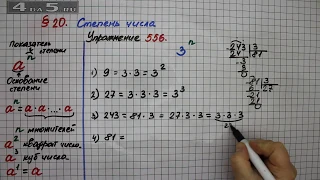 4da5.ru
§ 20. Степень числа.
Упражнение 556.
Показатель
степени
aⁿ
Основание
степени
aⁿ = a · a · ... · a
n множителей
a² квадрат числа
a³ куб числа.
a¹ = a
3ⁿ
1) 9 = 3 · 3 = 3²
2) 27 = 3 · 3 · 3 = 3³
3) 243 = 81 · 3 = 27 · 3 · 3 = 3 · 3 · 3
27
4) 81 =
243 3
81
3
3
0